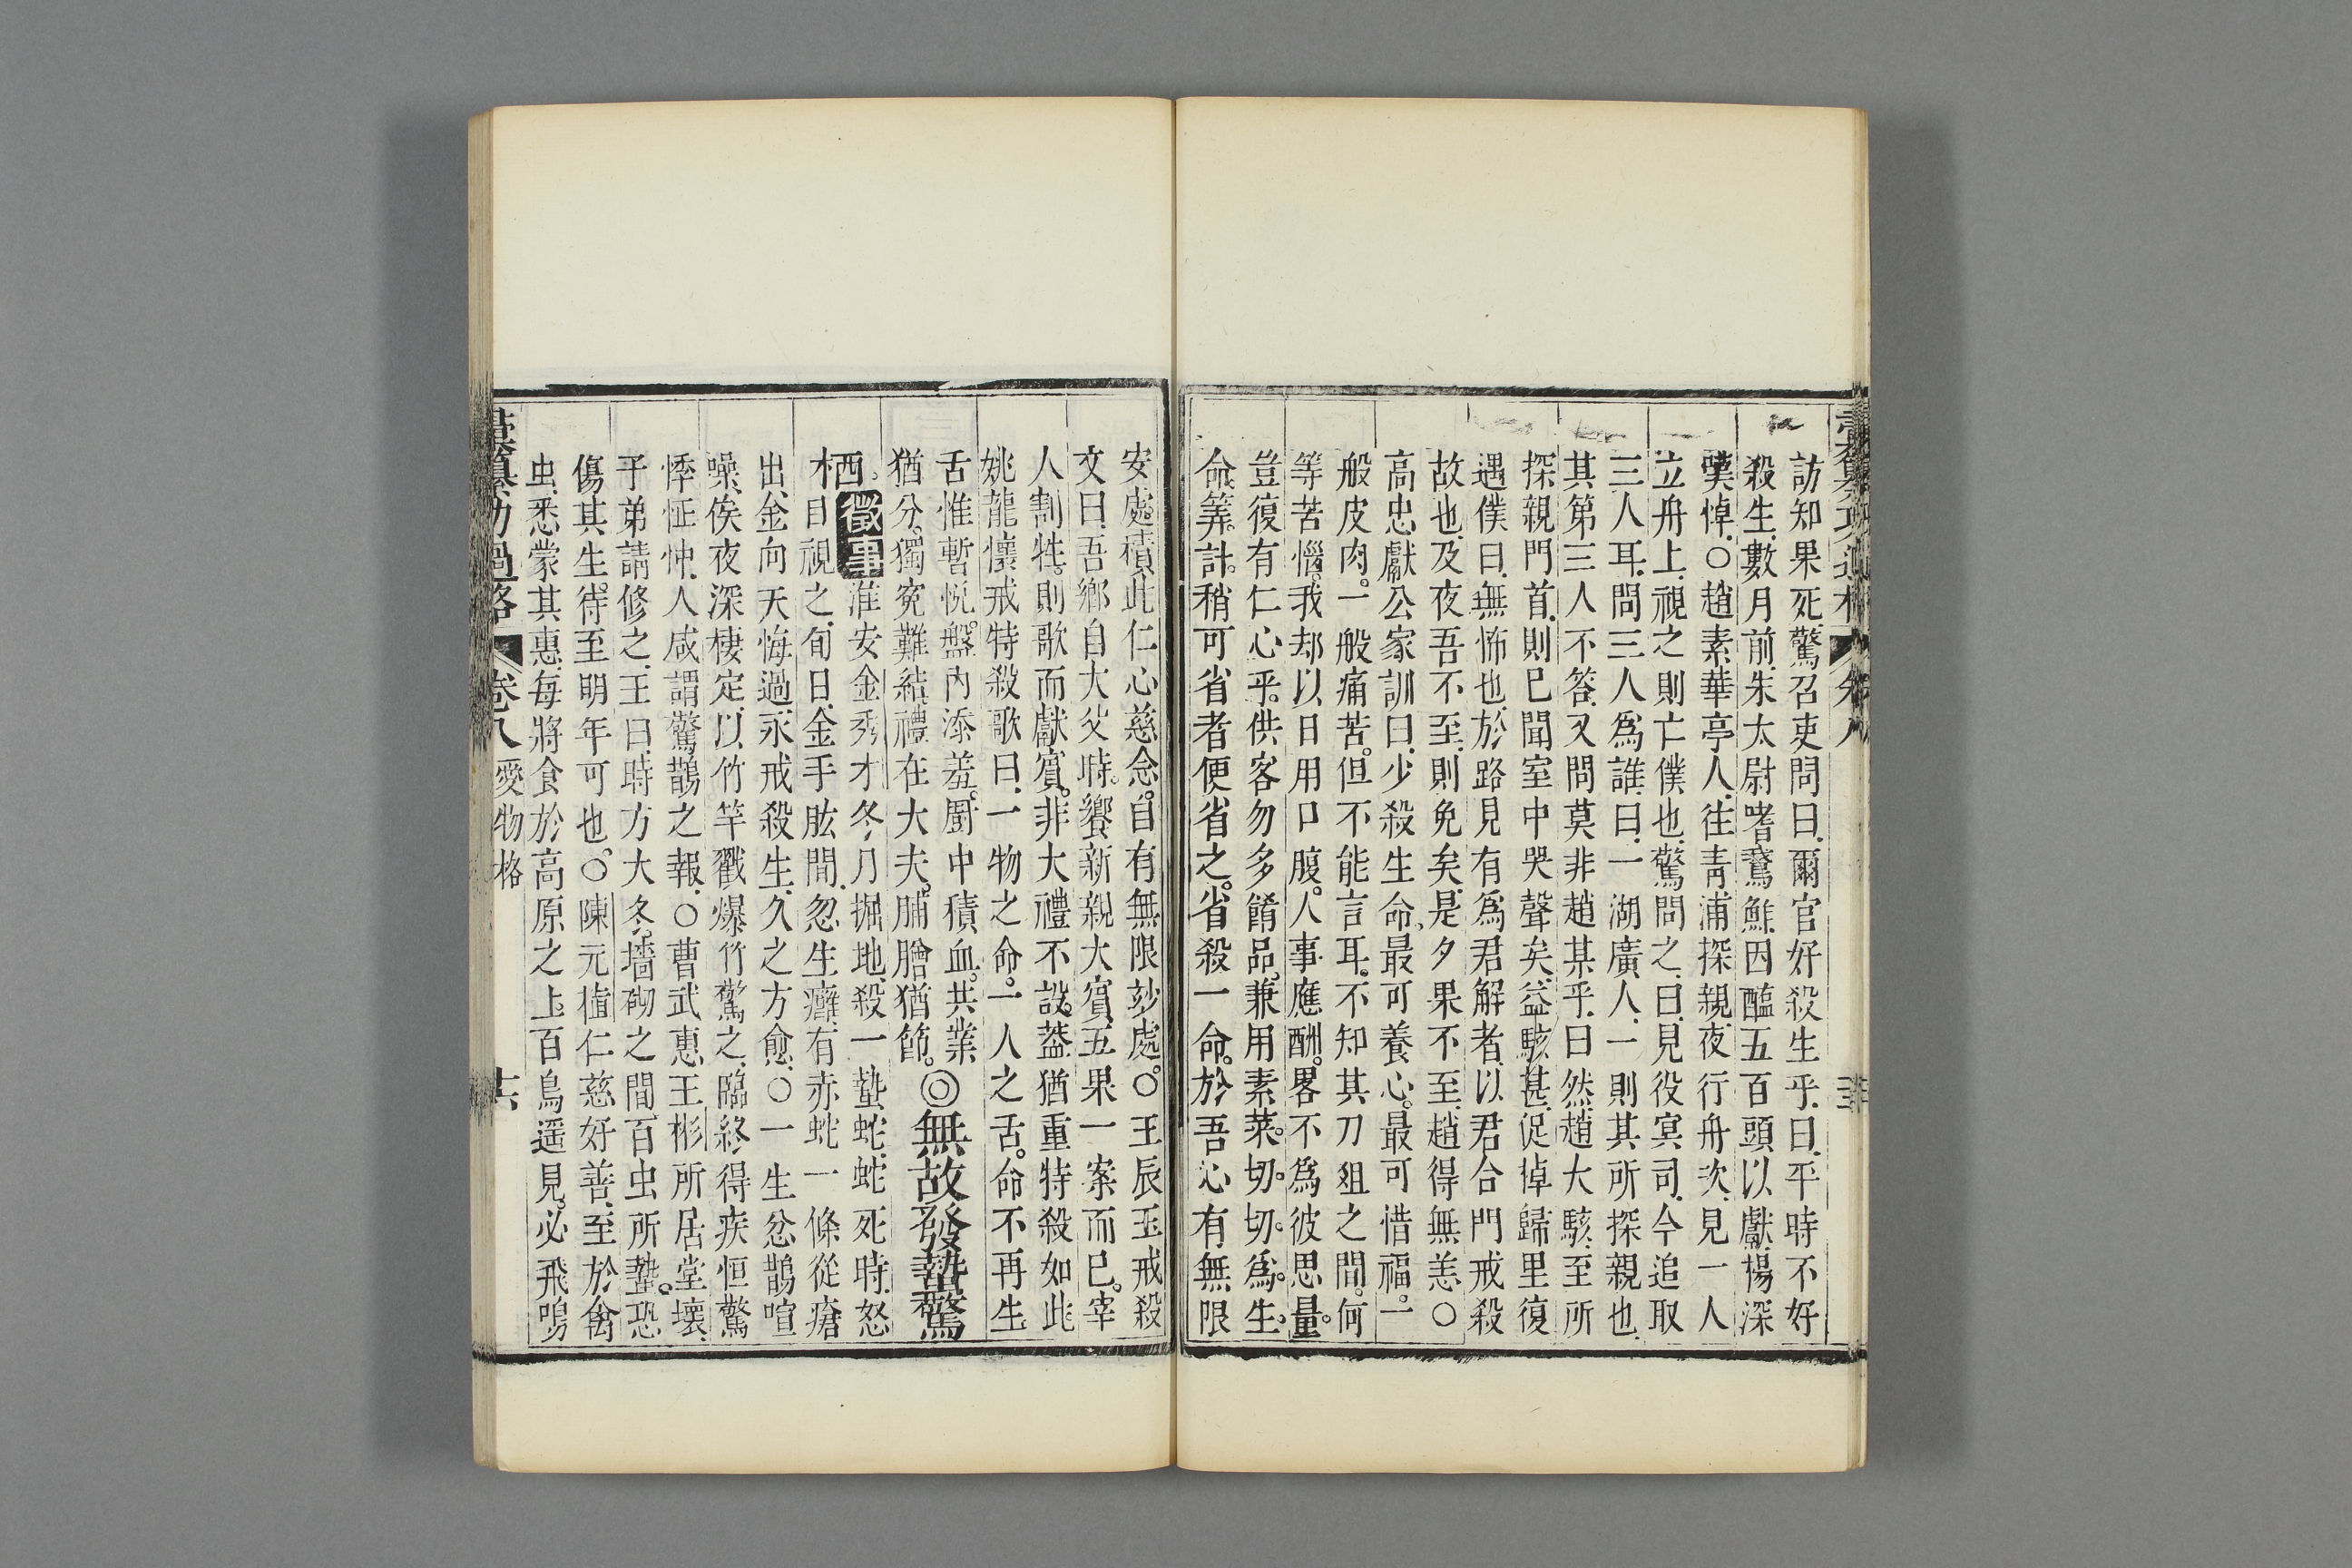 訪知果死驚召吏問曰爾官好殺生乎曰平時不好
殺生數月前朱太尉嗜鵞鮓因醢五百頭以獻楊深
嘆悼○趙素華亭人往青浦探親夜行舟次見一人
立舟上視之則亡僕也驚問之曰見役冥司今追取
三人耳問三人爲誰曰一湖廣人一則其所探親也
其第三人不答又問莫非趙某乎曰然趙大駭至所
探親門首則已聞室中哭聲矣益駭甚促掉歸里復
遇僕曰無怖也於路見有爲君解者以君合門戒殺
故也及夜吾不至則免矣是夕果不至趙得無恙○
高忠獻公家訓曰少殺生命最可養心最可惜福一
般皮肉一般痛苦但不能言耳不知其刀俎之間何
等苦惱我却以日用口腹人事應酬畧不爲彼思量
豈復有仁心乎供客勿多餚品兼用素菜切切爲生
命筭計稍可省者便省之省殺一命於吾心有無限
安處積此仁心慈念自有無限妙處○王辰玉戒殺
文曰吾鄉自大父時饗新親大賓五果一案而已宰
人割牲則歌而獻賓非大禮不設蓋猶重特殺如此
姚龍懷戒特殺歌曰一物之命一人之舌命不再生
舌惟暫悅盤內添羞厨中積血共業
猶分獨寃難結禮在大夫脯膾猶節◎無故發蟄驚
栖徵事淮安金秀才冬月掘地殺一蟄蛇蛇死時怒
目視之旬日金手肱間忽生癰有赤蛇一條從瘡
出金向天悔過永戒殺生久之方愈○一生忿鵲喧
噪俟夜深棲定以竹竿戳爆竹驚之臨終得疾恒驚
悸怔忡人咸謂驚鵲之報○曹武惠王彬所居堂壞
子弟請修之王曰時方大冬墻砌之間百虫所蟄恐
傷其生待至明年可也○陳元植仁慈好善至於禽
虫悉蒙其惠每將食於高原之上百鳥遥見必飛鳴
功過格 卷八 愛物格